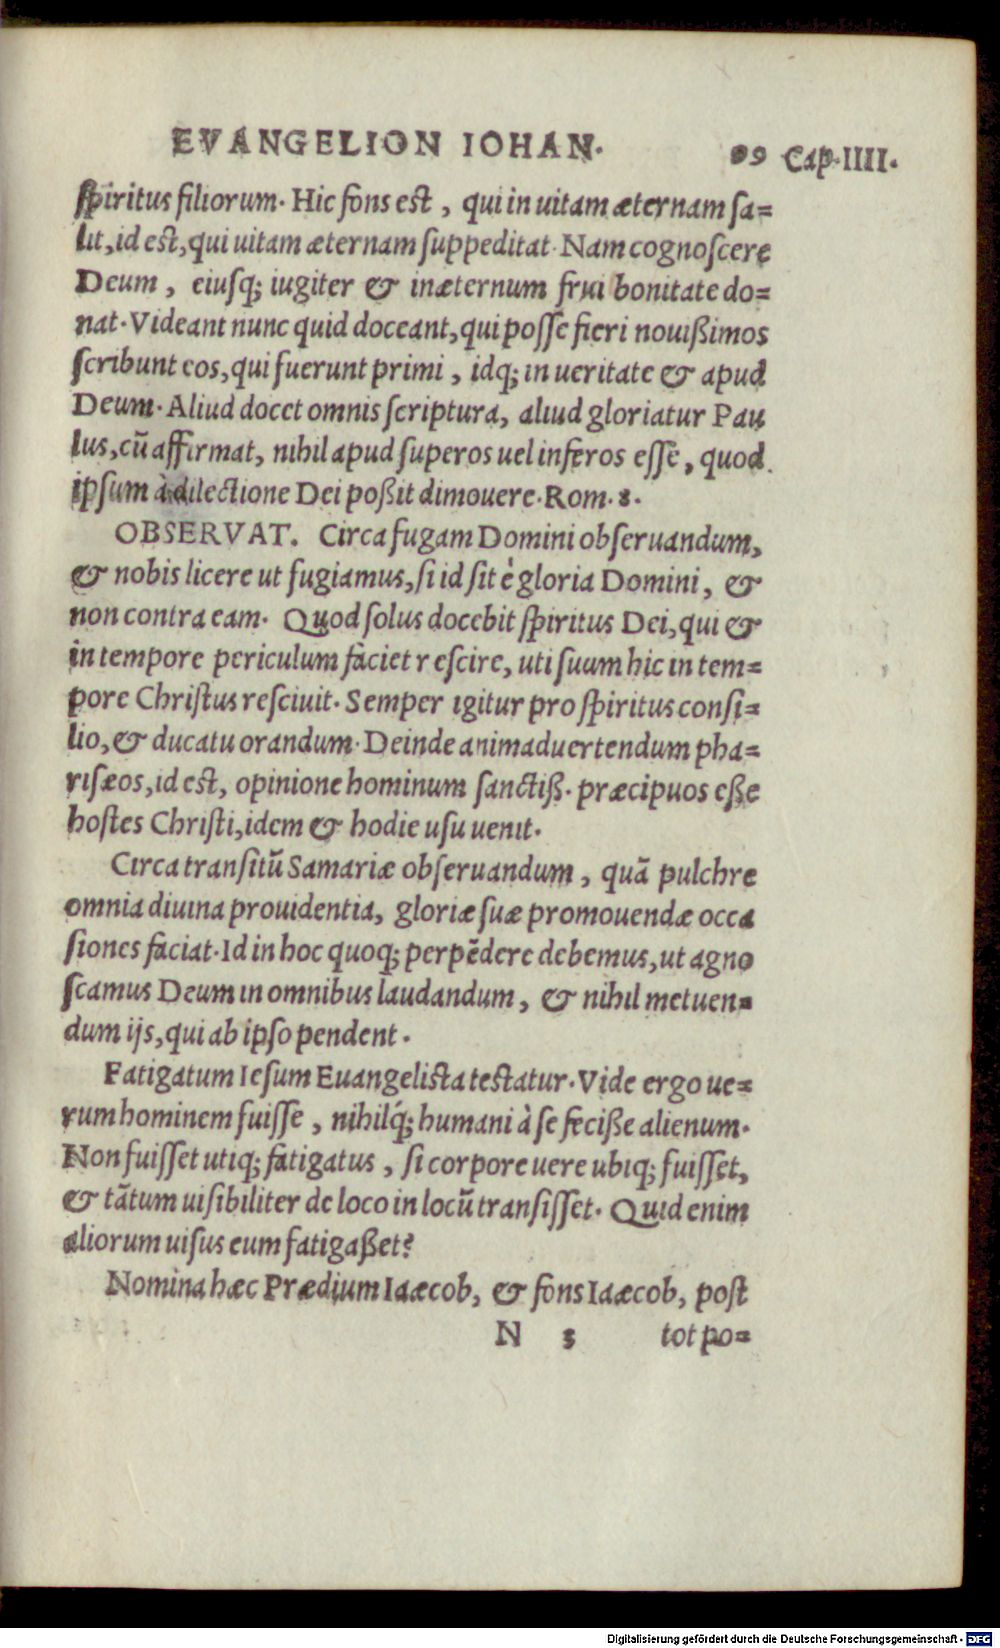 EVANGELION IOHAN. 99 Cap. IIII.
spiritus filiorum. Hic fons est, qui in uitam æternam sa=
lit, id est, qui uitam æternam suppeditat. Nam cognoscere
Deum, eiusq; iugiter & inæternum frui bonitate do=
nat. Videant nunc quid doceant, qui posse fieri nouißimos
scribunt eos, qui fuerunt primi, idq; in ueritate & apud
Deum. Aliud docet omnis scriptura, aliud gloriatur Pau
lus, cũ affirmat, nihil apud superos uel inferos esse, quod
ipsum à dilectione Dei poßit dimouere. Rom. 8.
OBSERVAT. Circa fugam Domini obseruandum,
& nobis licere ut fugiamus, si id sit è gloria Domini, &
non contra eam. Quod solus docebit spiritus Dei, qui &
in tempore periculum faciet rescire, uti suum hic in tem=
pore Christus resciuit. Semper igitur pro spiritus consi=
lio, & ducatu orandum. Deinde animaduertendum pha=
risæos, id est, opinione hominum sanctiß. præcipuos eße
hostes Christi, idem & hodie usu uenit.
Circa transitũ Samariæ obseruandum, quã pulchre
omnia diuina prouidentia, gloriæ suæ promouendæ occa
siones faciat. Id in hoc quoq; perpẽdere debemus, ut agno
scamus Deum in omnibus laudandum, & nihil metuen=
dum ijs, qui ab ipso pendent.
Fatigatum Iesum Euangelista testatur. Vide ergo ue=
rum hominem fuisse, nihilq́; humani à se feciße alienum.
Non fuisset utiq; fatigatus, si corpore uere ubiq; fuisset,
& tãtum uisibiliter de loco in locũ transisset. Quid enim
aliorum uisus eum fatigaßet?
Nomina hæc Prædium Iaæcob, & fons Iaæcob, post
N 3 tot po=
Digitalisierung gefördert durch die Deutsche Forschungsgemeinschaft - DFG